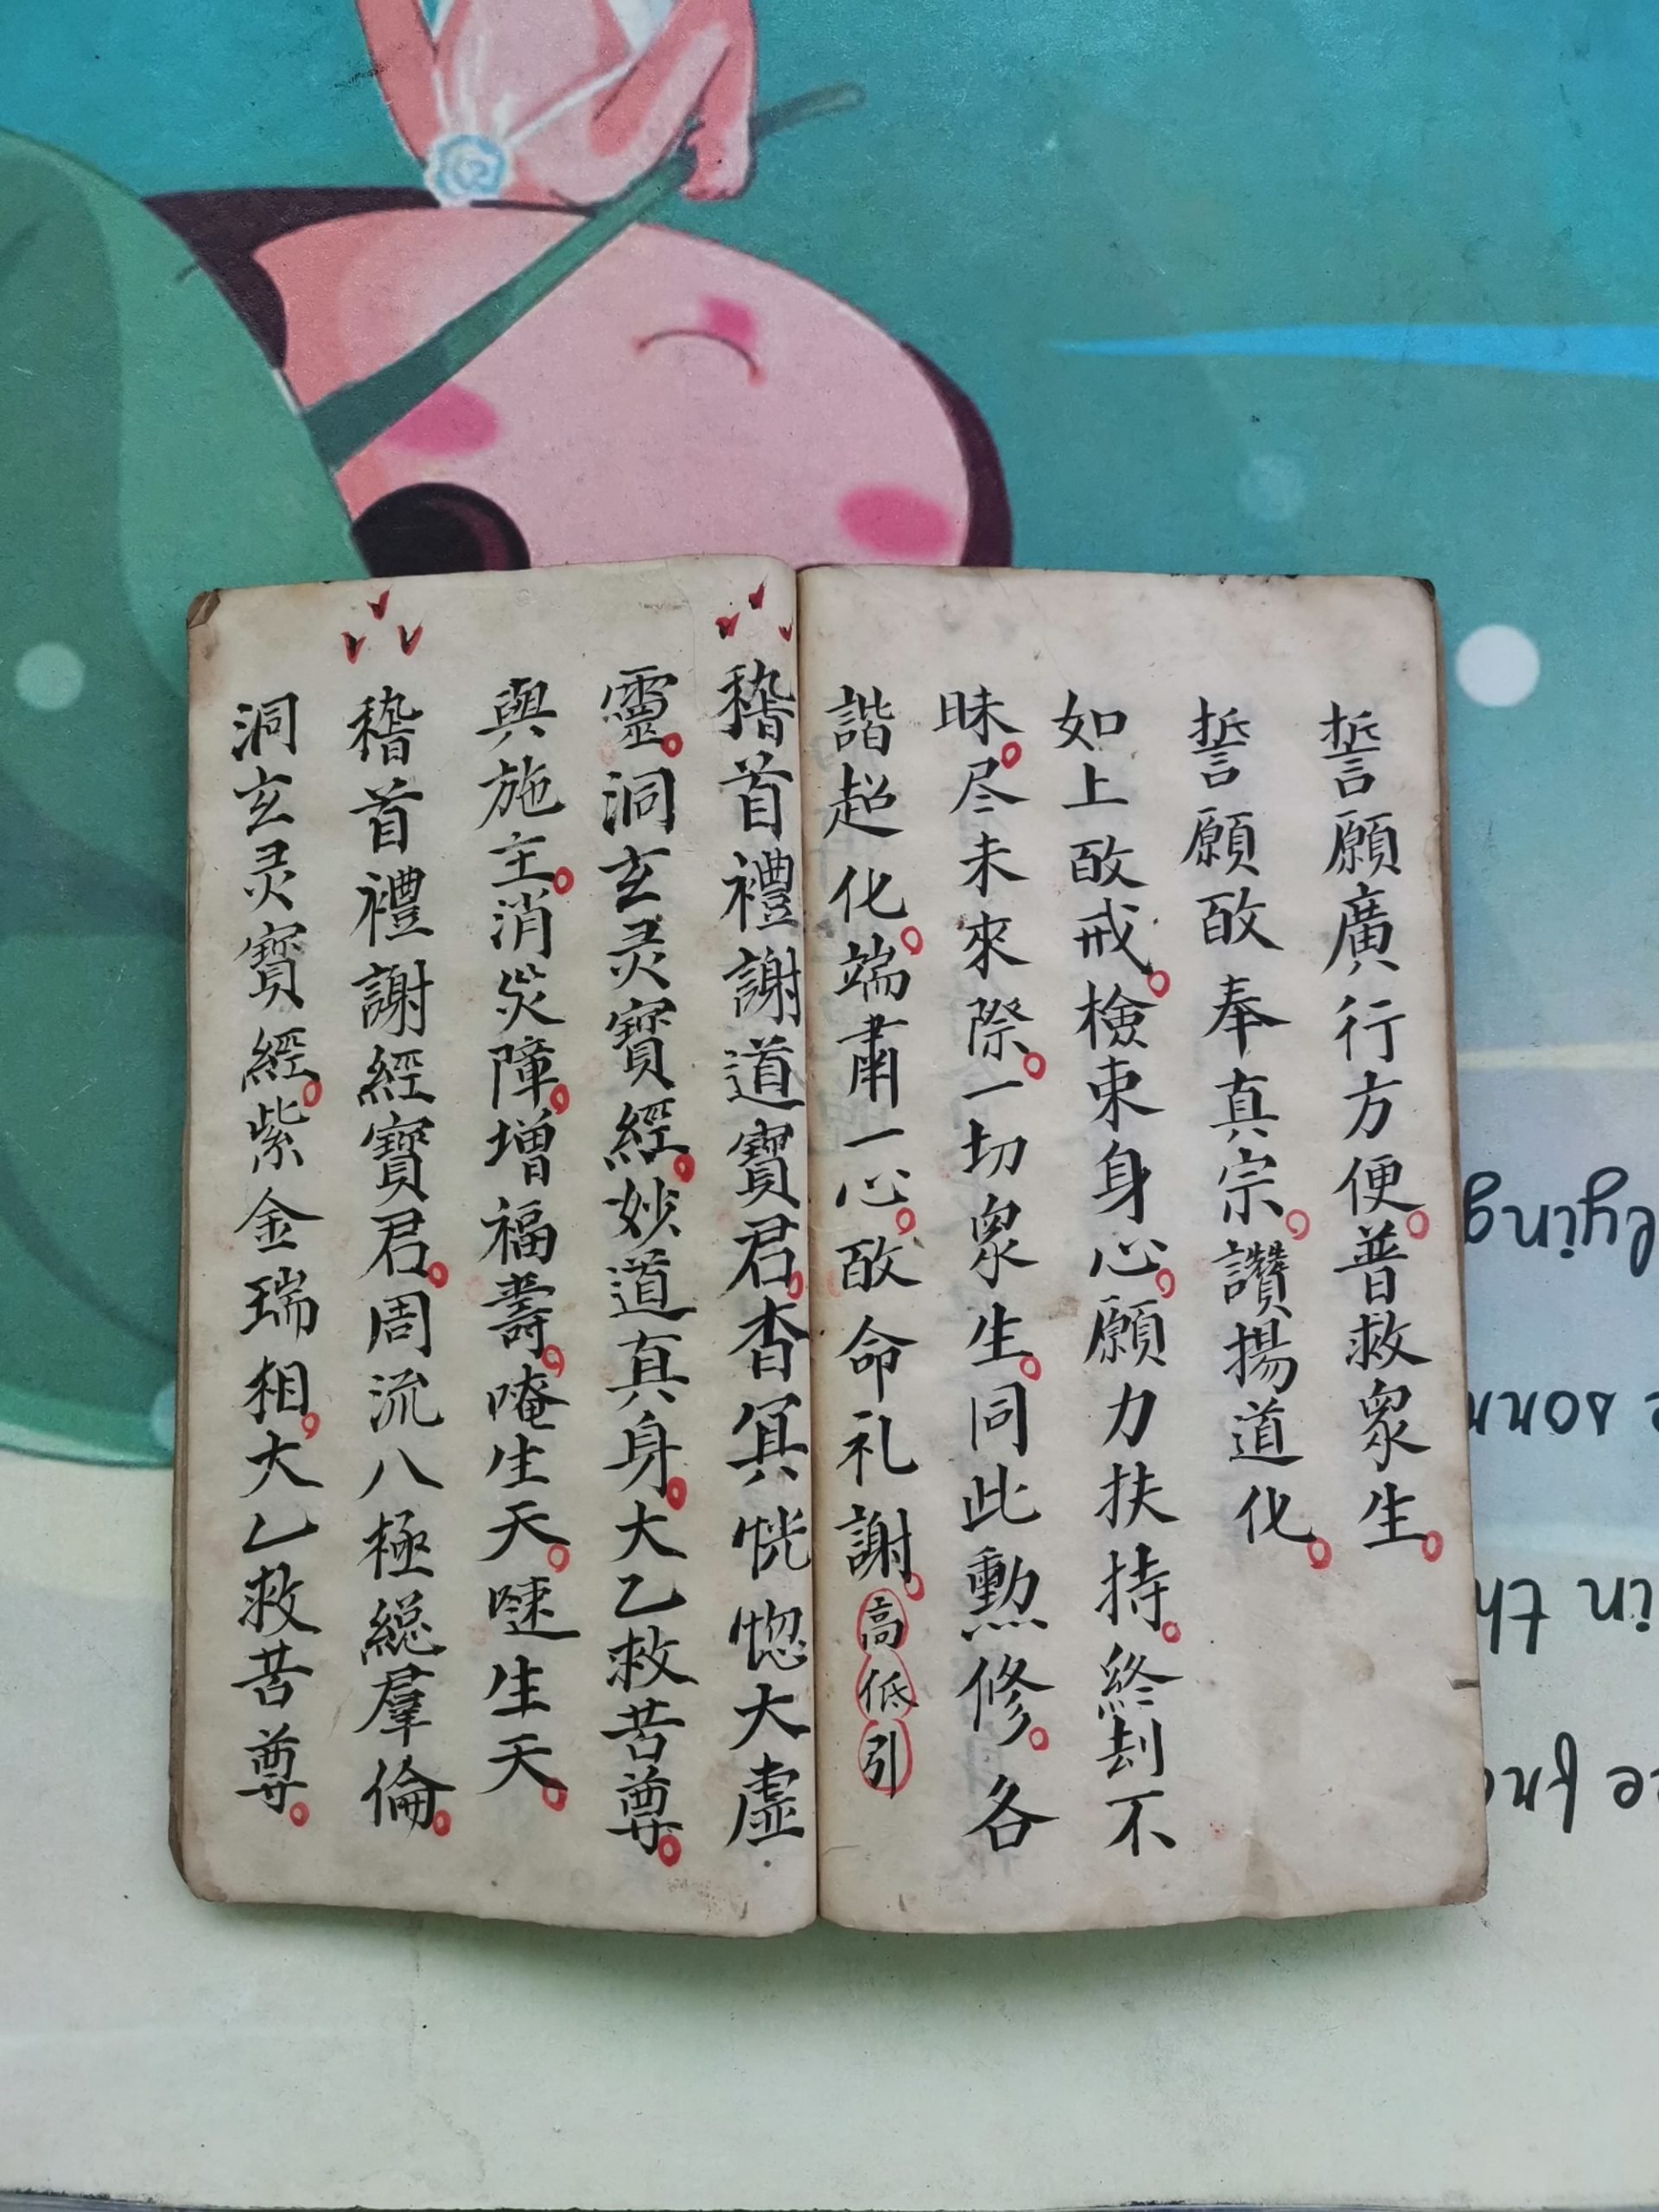 誓願廣行方便。普救衆生。
誓願㪅奉真宗。讚揚道化。
如上㪅戒。檢束身心。願力扶持。終刦不
昧。尽未來際。一切衆生。同此勲修。各
諧超化。端肅一心。㪅命礼謝。高低引
稽首禮謝道寶君。杳冥恍惚大虛
靈。洞玄灵寶經。妙道真身。大乙救苦尊。
與施主。消災障。增福壽。唵生天。㗭生天。
稽首禮謝經寶君。周流八極総羣倫。
洞玄灵寶經。紫金瑞相。大乙救苦尊。
lying
sonn
in th